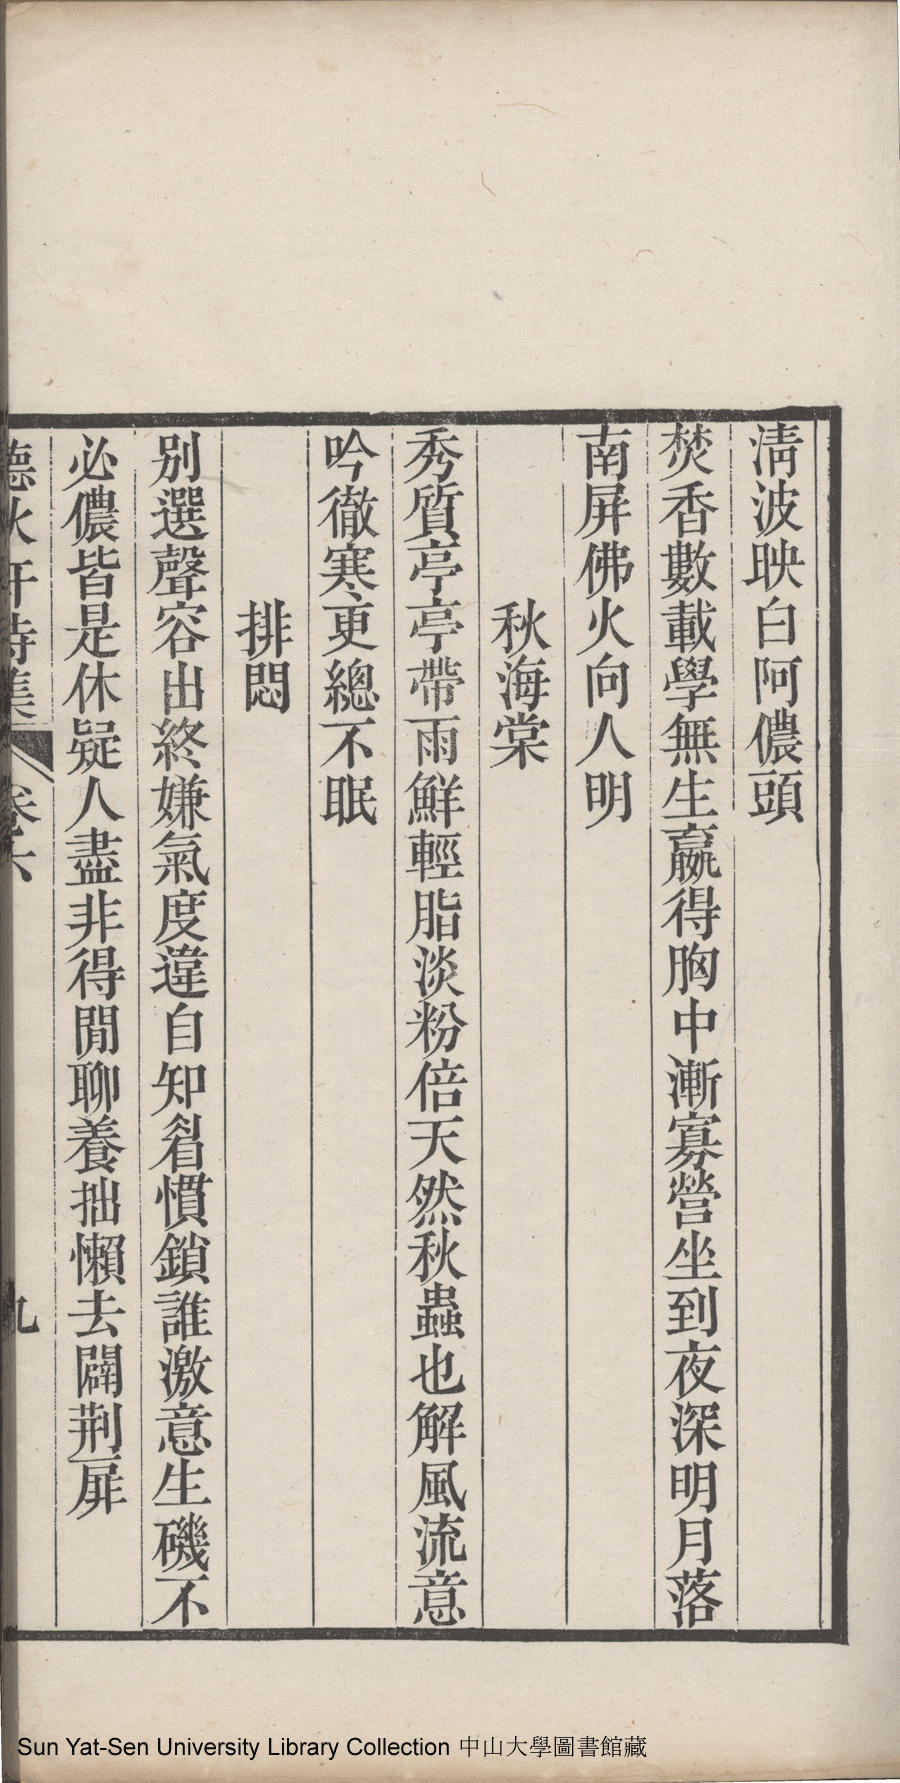 清波映白阿儂頭
焚香數載學無生嬴得胸中漸寡營坐到夜深明月落
南屏佛火向人明
秋海棠
秀質亭亭帶雨鮮輕脂淡粉倍天然秋蟲也解風流意
吟徹寒更總不眠
排悶
別選聲容出終嫌氣度違自知眉慣鎖誰激意生磯不
必儂皆是休疑人盡非得閒聊養拙懶去闢荆扉
詩集 卷六 九
Sun Yat-Sen University Library Collection 中山大學圖書館藏